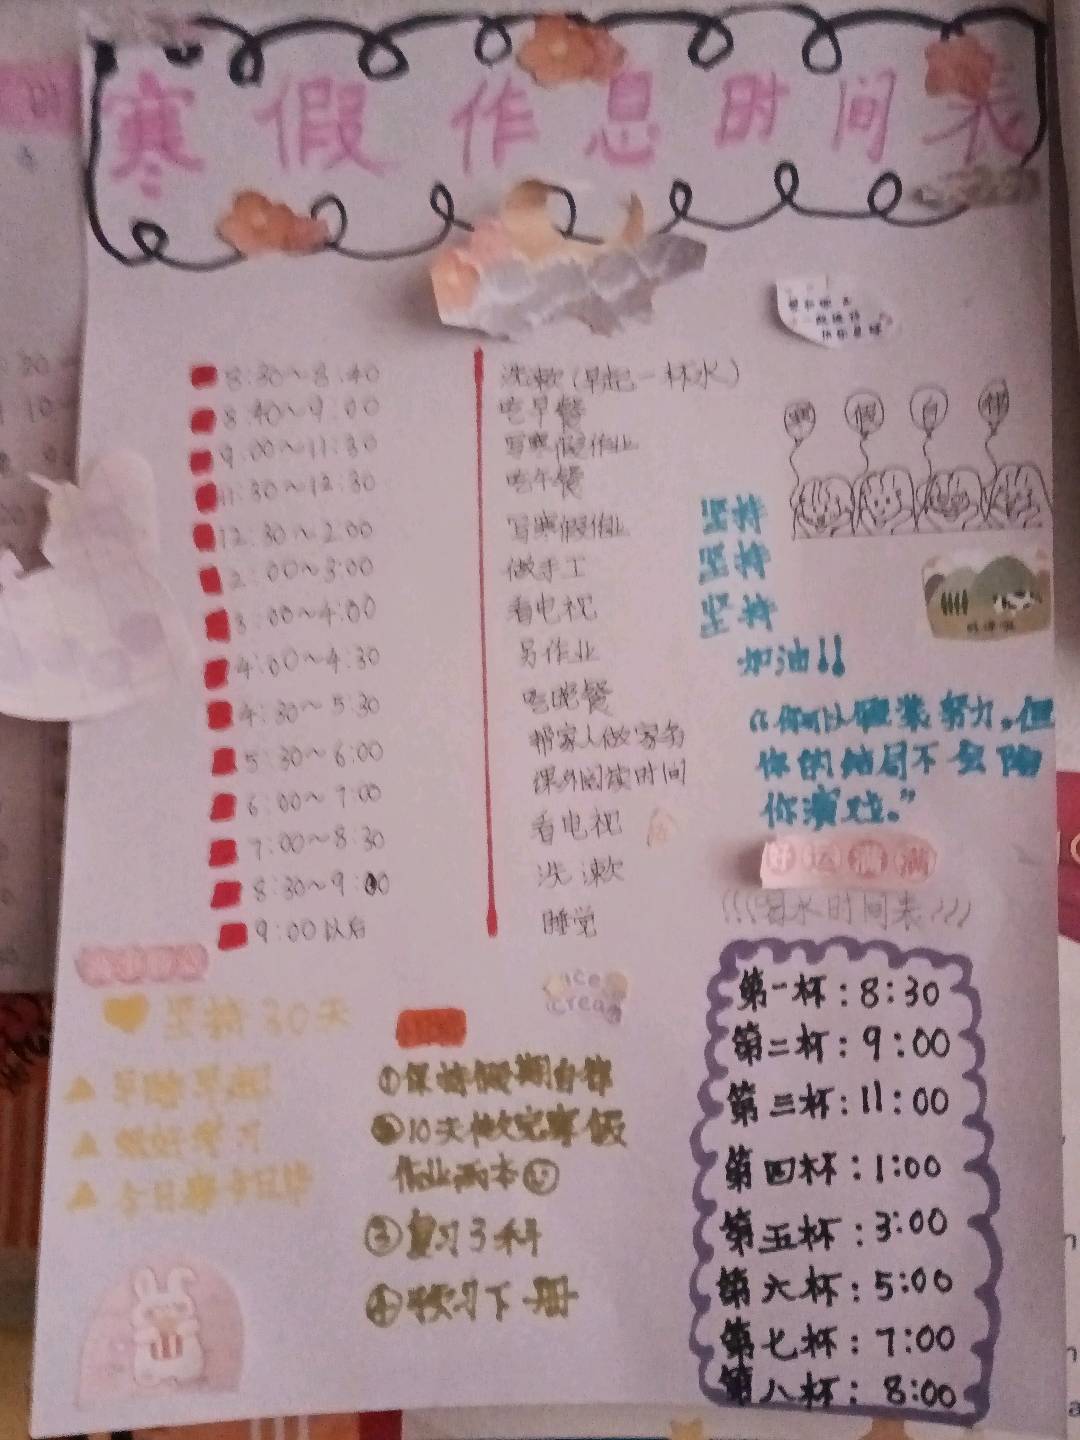 寒假作息时间表
8:30~8:40 洗漱(早起一杯水)
8:40~9:00 吃早餐
9:00~11:30 写寒假作业
11:30~12:30 吃午餐
12:30~2:00 写寒假作业
2:00~3:00 做手工
3:00~4:00 看电视
4:00~4:30 写作业
4:30~5:30 吃晚餐
5:30~6:00 帮家人做家务
6:00~7:00 课外阅读时间
7:00~8:30 看电视
8:30~9:00 洗漱
9:00以后 睡觉
寒假自律
坚持
坚持
坚持
加油!!
“你可以假装努力。但
你的结局不会陪
你演戏。”
好运满满
(((喝水时间表)))
第一杯:8:30
第二杯:9:00
第三杯:11:00
第四杯:1:00
第五杯:3:00
第六杯:5:00
第七杯:7:00
第八杯:8:00
坚持30天
早睡早起
做好学习
今日事今日毕
①保持假期自律
②10天做完寒假
作业两本
③复习3科
④预习下册